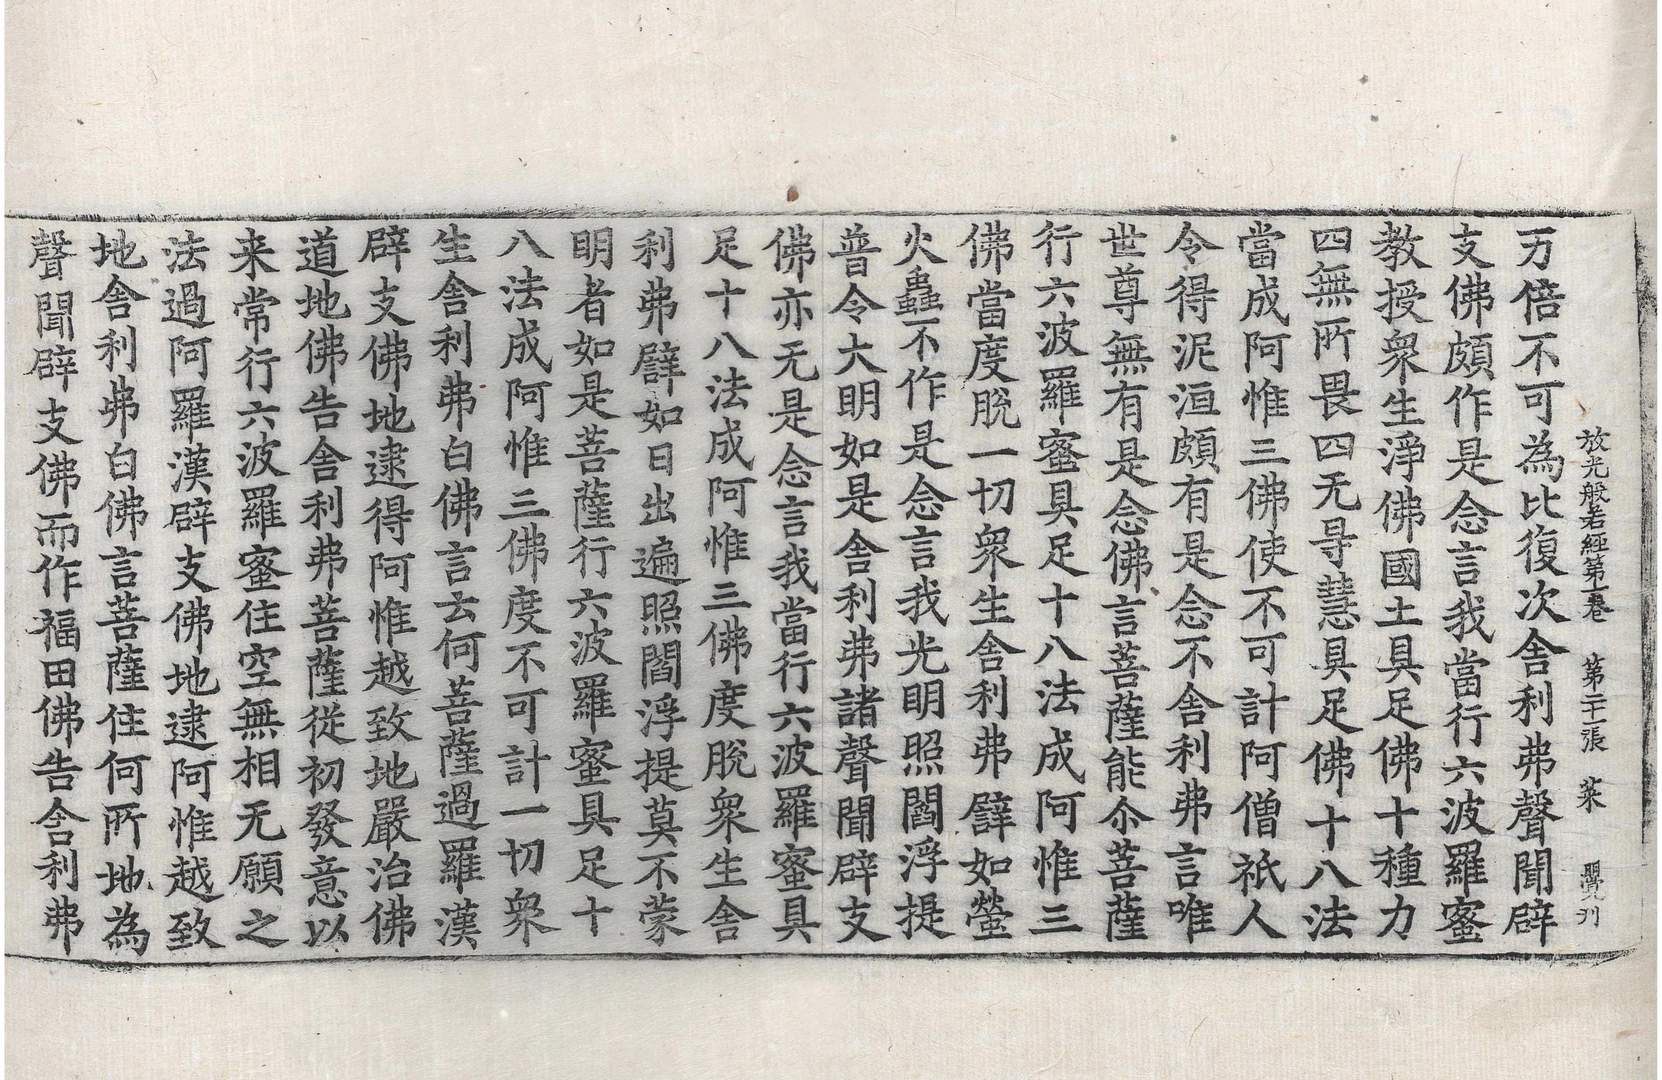 放光般若經第一卷 第二十一張 菜
万倍不可為比復次舎利弗聲聞辟
支佛頗作是念言我當行六波羅蜜
教授衆生淨佛國土具足佛十種力
四無所畏四无㝵慧具足佛十八法
當成阿惟三佛使不可計阿僧祇人
令得泥洹頗有是念不舎利弗言唯
世尊無有是念佛言菩薩能尒菩薩
行六波羅蜜具足十八法成阿惟三
佛當度脫一切衆生舎利弗譬如螢
火蟲不作是念言我光明照閻浮提
普令大明如是舎利弗諸聲聞辟支
佛亦无是念言我當行六波羅蜜具
足十八法成阿惟三佛度脫衆生舎
利弗譬如日出遍照閻浮提莫不蒙
明者如是菩薩行六波羅蜜具足十
八法成阿惟三佛度不可計一切衆
生舎利弗白佛言云何菩薩過羅漢
辟支佛地逮得阿惟越致地嚴治佛
道地佛告舎利弗菩薩從初發意以
来常行六波羅蜜住空無相无願之
法過阿羅漢辟支佛地逮阿惟越致
地舎利弗白佛言菩薩住何所地為
聲聞辟支佛而作福田佛告舎利弗